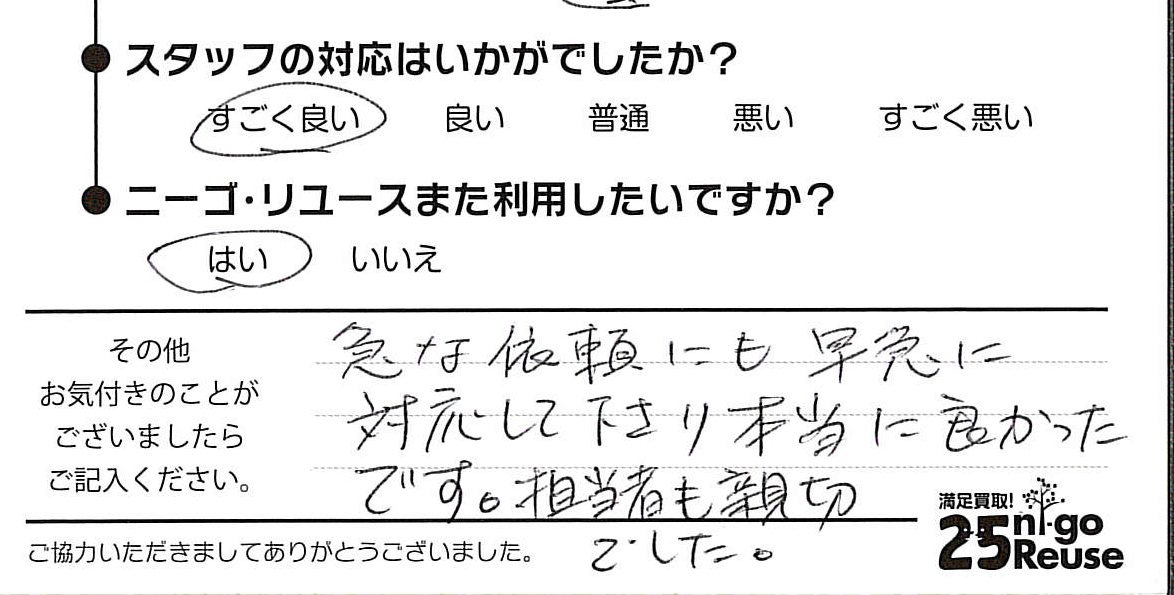 スタッフの対応はいかがでしたか？
すごく良い 良い 普通 悪い すごく悪い
ニーゴ・リユースまた利用したいですか？
はい いいえ
その他
お気付きのことが
ございましたら
ご記入ください。
急な依頼にも早急に
対応して下さり本当に良かった
です。担当者も親切
でした。
ご協力いただきましてありがとうございました。
満足買取!
25 ni-go
Reuse